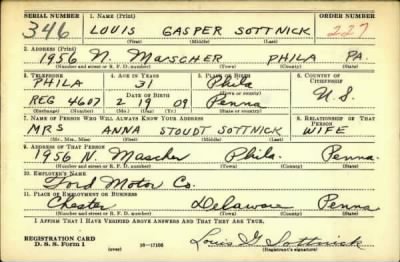 SERIAL NUMBER 1. NAME (Print) ORDER NUMBER
346 LOUIS GASPER SOTTNICK 227
(First) (Middle) (Last)
2. ADDRESS (Print)
1956 N. MARSCHER PHILA PA.
(Number and street or R. F. D. number) (Town) (County) (State)
3. TELEPHONE 4. AGE IN YEARS 5. PLACE OF BIRTH 6. COUNTRY OF CITIZENSHIP
PHILA 31 Phila
DATE OF BIRTH (Town or county)
REG 4607 2 19 09 Penna U.S.
(Exchange) (Number) (Mo.) (Day) (Yr.) (State or country)
7. NAME OF PERSON WHO WILL ALWAYS KNOW YOUR ADDRESS 8. RELATIONSHIP OF THAT PERSON
MRS ANNA STOUDT SOTTNICK WIFE
(Mr., Mrs., Miss) (First) (Middle) (Last)
9. ADDRESS OF THAT PERSON
1956 N. Mascher Phila. Penna.
(Number and street or R. F. D. number) (Town) (County) (State)
10. EMPLOYER'S NAME
Ford Motor Co.
11. PLACE OF EMPLOYMENT OR BUSINESS
Chester Delaware Penna
(Number and street or R. F. D. number) (Town) (County) (State)
I AFFIRM THAT I HAVE VERIFIED ABOVE ANSWERS AND THAT THEY ARE TRUE.
REGISTRATION CARD
D. S. S. Form 1 (over) 16—17105 Louis G. Sottnick
(Registrant's signature)